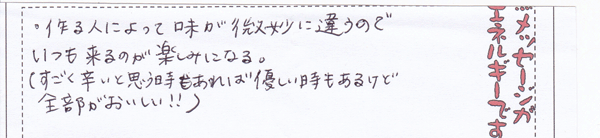 ・作る人によって味が微妙に違うので
いつも来るのが楽しみになる。
(すごく辛いと思う時もあれば優しい時もあるけど
全部がおいしい!!)
メッセージが
エネルギーです